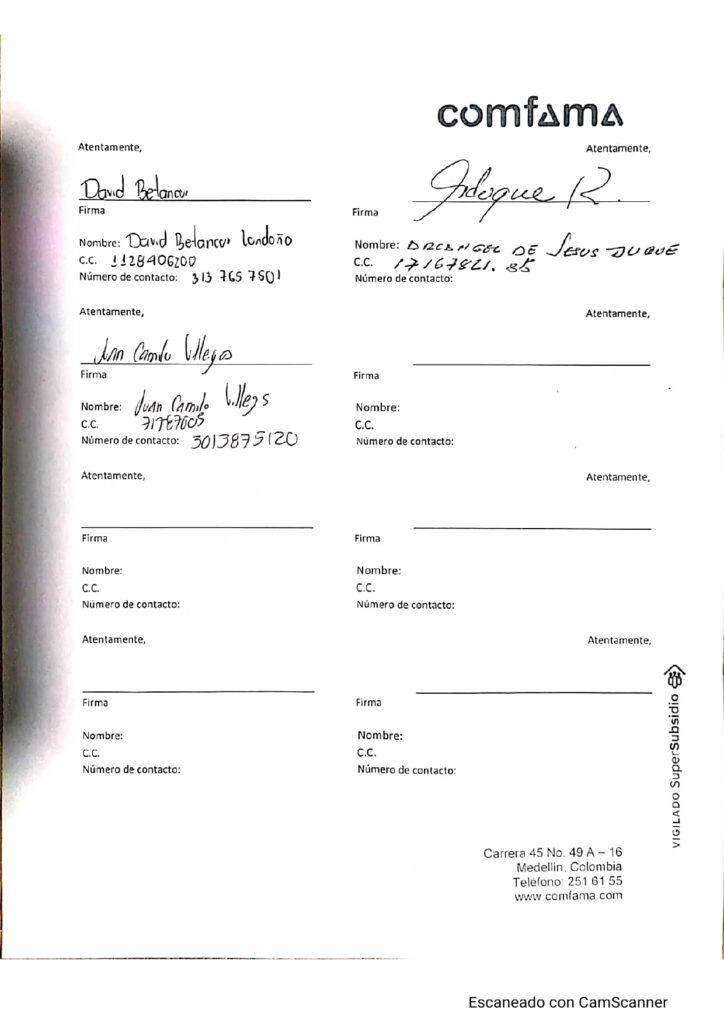 comfama
Atentamente,
David Betancur
Firma
Nombre: David Betancur Londoño
C.C. 1128406200
Número de contacto: 313 765 7501
Atentamente,
Firma
Nombre: ARCANGEL DE JESUS DUQUE
C.C.
Número de contacto:
Atentamente,
Juan Camilo Villegas
Firma
Nombre: Juan Camilo Villegs
C.C. 71787005
Número de contacto: 3013875120
Atentamente,
Firma
Nombre:
C.C.
Número de contacto:
Atentamente,
Firma
Nombre:
C.C.
Número de contacto:
Atentamente,
Firma
Nombre:
C.C.
Número de contacto:
Atentamente,
Firma
Nombre:
C.C.
Número de contacto:
Atentamente,
Firma
Nombre:
C.C.
Número de contacto:
VIGILADO SuperSubsidio
Carrera 45 No. 49 A – 16
Medellín, Colombia
Teléfono: 251 61 55
www.comfama.com
Escaneado con CamScanner